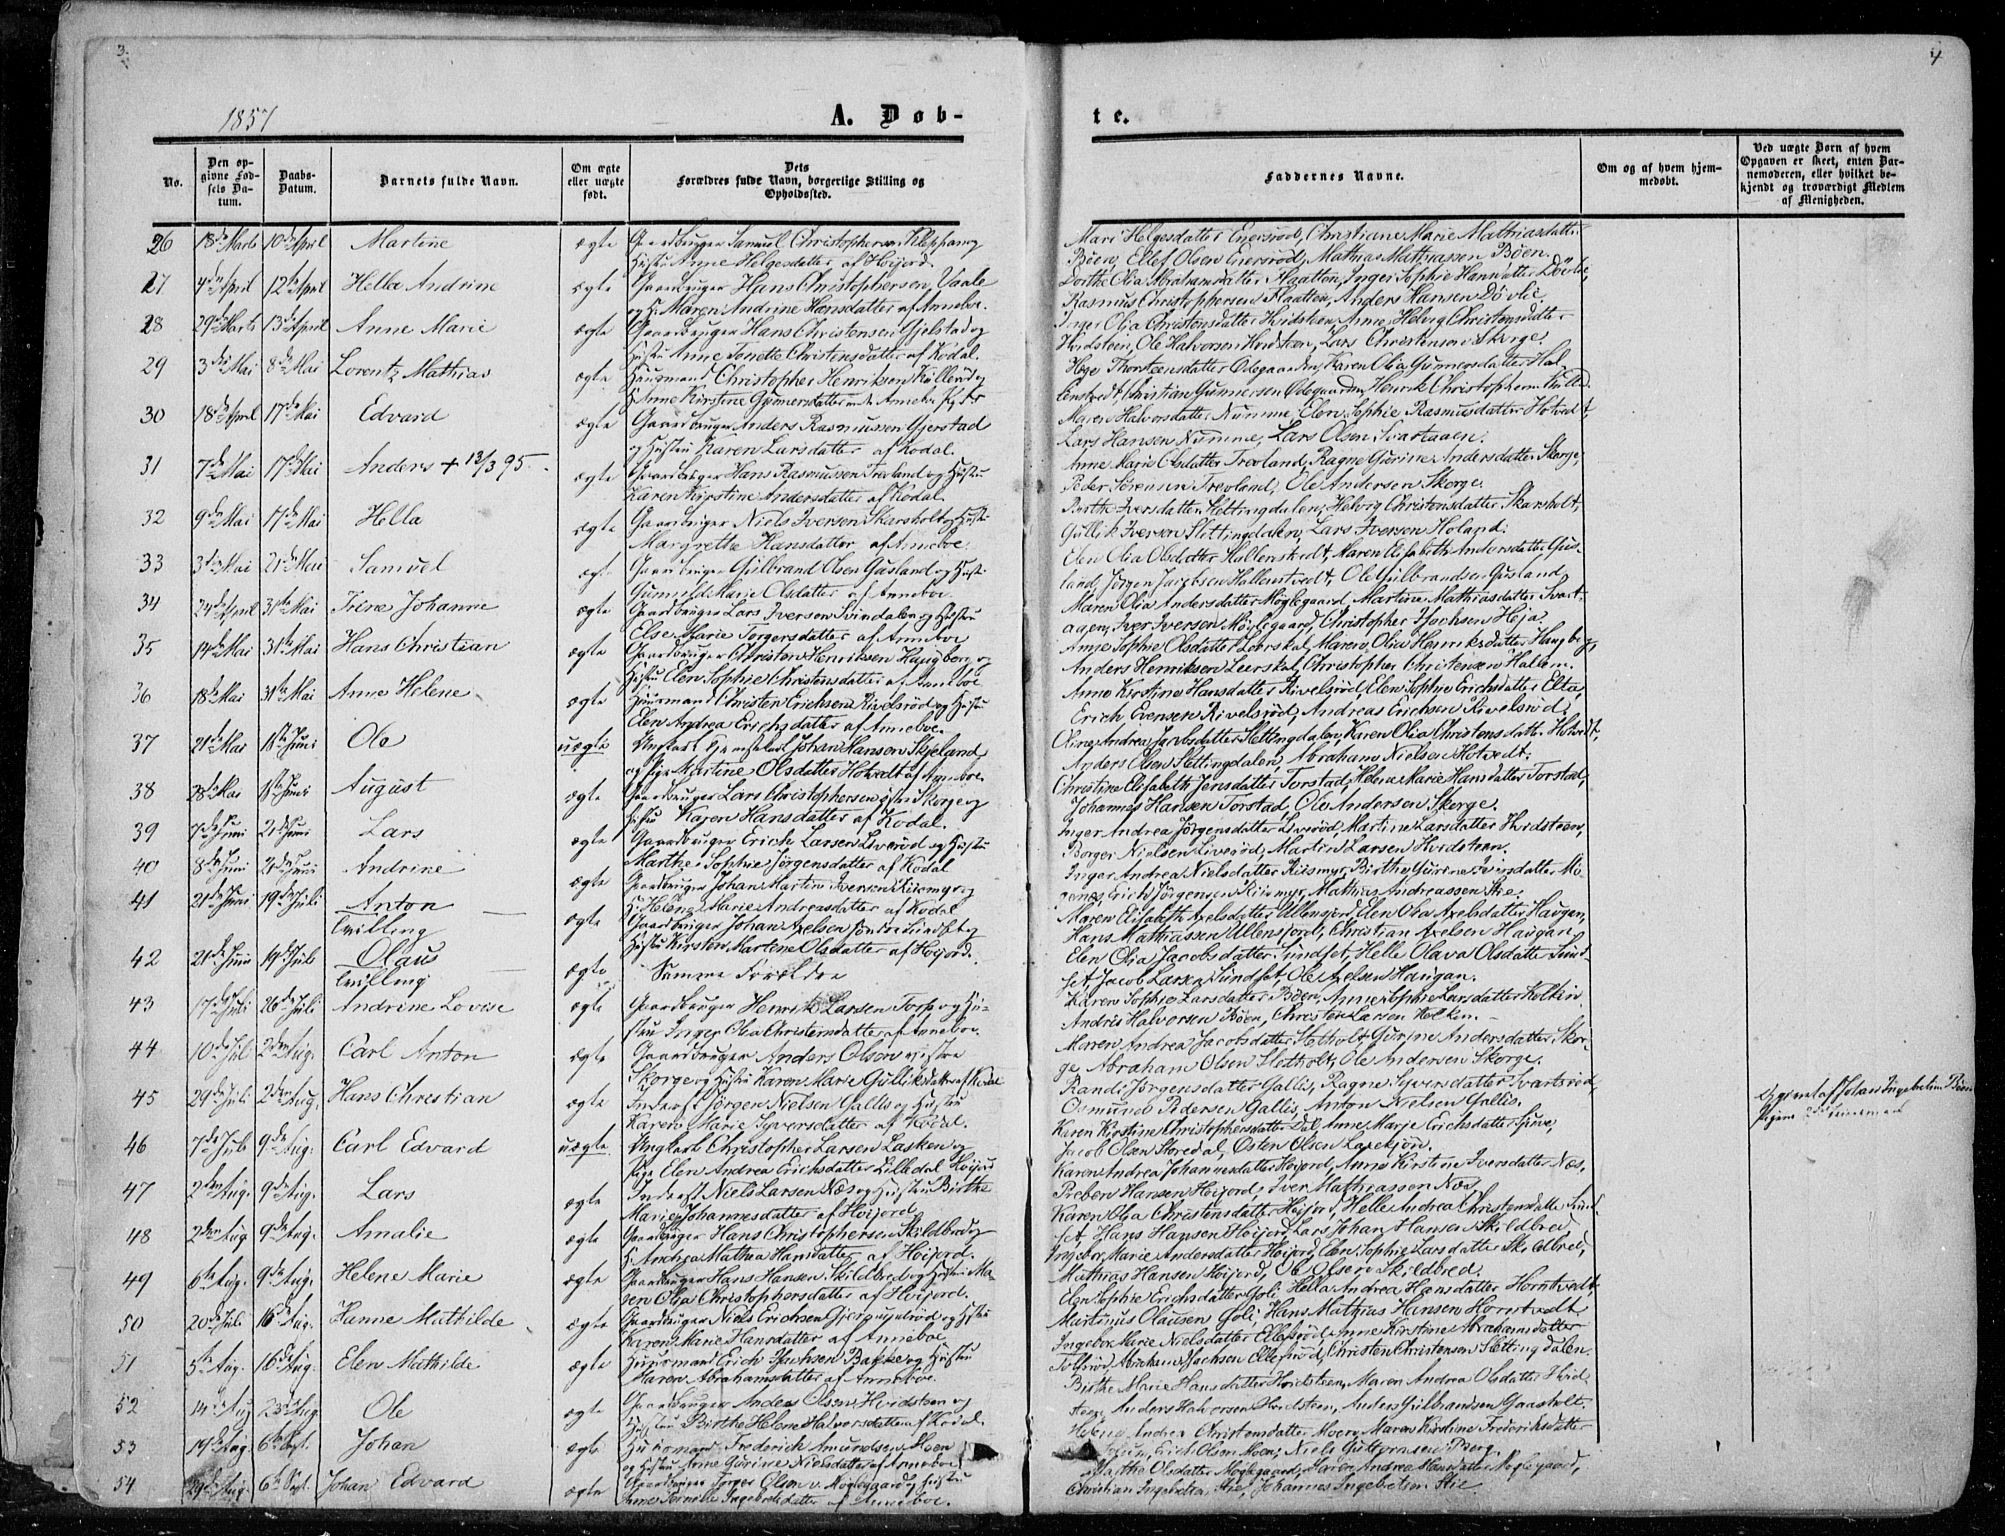 3.
4
1857
A. Døb-
te.
No.
Den opgivne Fødsels Datum.
Daabs-Datum.
Barnets fulde Navn.
Om ægte eller uægte født.
Dets Forældres fulde Navn, borgerlige Stilling og Opholdssted.
Faddernes Navne.
Om og af hvem hjemmedøbt.
Ved uægte Børn af hvem Opgaven er skeet, enten Barnemoderen, eller hvilket bekjendt og troværdigt Medlem af Menigheden.
26 18de Marts 10de April Martine ægte Gaardbruger Samuel Christophersen Kleppan og
Hustru Anne Helgesdatter af Høijord.
Mari Helgesdatter Enersrød, Christiane Marie Mathiasdatter
Bøen, Ellef Olsen Enersrød, Mathias Mathiassen Bøen.
27 4de April 12te April Hella Andrine ægte Gaardbruger Hans Christophersen Vaale
og H. Maren Andrine Hansdatter af Anneboe.
Dorthe Olia Abrahamsdatter Flaatten, Inger Sophie Hansdatter Døvle,
Rasmus Christophersen Flaatten, Anders Hansen Døvle.
28 29de Marts 13de April Anne Marie ægte Gaardbruger Hans Christensen Gjelstad og
Hustru Anne Tonette Christensdatter af Kodal.
Inger Olia Christensdatter Hvidsteen, Anne Helvig Christensdatter
Hvidsteen, Ole Halvorsen Hvidsteen, Lars Christensen Skorge.
29 3die Mai 8de Mai Lorentz Mathias ægte Huusmand Christopher Henriksen Kullerød og
H. Anne Kirstine Gunnersdatter
Christian Gunnersen Ødegaarden, Henrik Christophersen
30 18de April 17de Mai Edvard ægte Gaardbruger Anders Rasmussen Gjerstad
og Hustru Karen Larsdatter af Kodal.
Maren Halvorsdatter Numme, Elen Sophie Rasmusdatter Hotvedt,
Lars Hansen Numme, Lars Olsen Svartaaen.
31 7de Mai 17de Mai Anders + 13/3 95. ægte Gaardbruger Hans Rasmussen Trevland og Hustru
Karen Kirstine Andersdatter af Kodal.
Anne Marie Olsdatter Trevland, Ragne Gurine Andersdatter Skorge,
Peder Sørensen Trevland, Ole Andersen Skorge.
32 9de Mai 17de Mai Hella ægte Gaardbruger Niels Iversen Skarsholt og Hustru
Margrethe Hansdatter af Anneboe.
Berthe Iversdatter Slettingdalen, Helvig Christensdatter Skarsholt,
Gullik Iversen Slettingdalen, Lars Iversen Holand.
33 3die Mai 21de Mai Samuel ægte Gaardbruger Gulbrand Olsen Gusland og Hustru
Gunnild Marie Olsdatter af Anneboe
Elen Olia Olsdatter Hallenstvedt, Maren Elisabeth Andersdatter Gus-
land, Jørgen Jacobsen Hallenstvedt, Ole Gulbrandsen Gusland
34 24de April 31te Mai Trine Johanne ægte Gaardbruger Lars Iversen Svindalen og Hustru
Else Marie Torgersdatter af Anneboe
Maren Olia Andersdatter Møglegaard, Martine Mathiasdatter Svart-
aaen, Iver Iversen Møglegaard, Christopher Isachsen Heja.
35 14de Mai 31te Mai Hans Christian ægte Gaardbruger Christen Henriksen Haugberg og
Hustru Elen Sophie Christensdatter af Anneboe
Antje Sophie Olsdatter Leerskal, Maren Olia Henriksdatter Haugberg,
Anders Henriksen Leerskal, Christopher Christensen Hallem.
36 18de Mai 31te Mai Anne Helene ægte Huusmand Christen Erichsen Rivelsrød og Hustru
Elen Andrea Erichsdatter af Anneboe.
Anne Kirstine Hansdatter Rivelsrød, Elen Sophie Erichsdatter
Erich Evensen Rivelsrød, Andreas Erichsen Rivelsrød.
37 21de Mai 1ste Juni Ole uægte Ungkarl Johan Hansen Skjeland
og Pige Martine Olsdatter Hotvedt af Anneboe.
Oline Andrea Jacobsdatter Slettingdalen, Karen Olia Christensdatter Hotvedt,
Anders Olsen Slettingdalen, Abraham Nielsen Hotvedt.
38 28de Mai 1ste Juni August ægte Gaardbruger Lars Christophersen østre Skorge og
Hustru Karen Hansdatter af Kodal.
Christine Elisabeth Jensdatter Torstad, Helene Marie Hansdatter Torstad,
Johannes Hansen Torstad, Ole Andersen Skorge.
39 7de Juni 21de Juni Lars ægte Gaardbruger Erich Larsen Liverød og Hustru
Marthe Sophie Jørgensdatter af Kodal
Inger Andrea Jørgensdatter Liverød, Martine Larsdatter Hvidsteen,
Borger Nielsen Liverød, Martin Larsen Hvidsteen.
40 8de Juni 21de Juni Andrine ægte Gaardbruger Johan Martin Iversen Riismyr og
H. Helene Marie Andreasdatter af Kodal
Inger Andrea Nielsdatter Riismyr, Birthe Gurine
Erich Jørgensen Riismyr, Mathias Andreassen Stie.
41 21de Juni 19de Juli Anton ægte Gaardbruger Johan Axelsen søndre Sundset og
Tvilling
Hustru Kirsten Martene Olsdatter af Høijord.
Maren Elisabeth Axelsdatter Ullensjord, Elen Olia Axelsdatter Haugan,
Hans Mathiassen Ullensjord, Christian Axelsen Haugan.
42 21de Juni 19de Juli Olaus ægte Samme Forældre
Tvilling
Elen Olia Jacobsdatter Sundset, Helle Olava Olsdatter Sund-
set, Jacob Larsen Sundset, Ole Axelsen Haugan.
43 17de Juli 26de Juli Andrine Lovise ægte Gaardbruger Henrik Larsen Torp og Hu-
stru Inger Olia Christensdatter af Anneboe.
Karen Sophie Larsdatter Bøen, Anne Sophie Larsdatter Holken
Andris Halvorsen Bøen, Christen Larsen Holken.
44 10de Juli 2den Aug. Carl Anton ægte Gaardbruger Anders Olsen vestre
Skorge og Hustru Karen Marie Gulliksdatter af Kodal
Maren Andrea Jacobsdatter Slotholt, Gurine Andersdatter Skor-
ge, Abraham Olsen Slotholt, Ole Andersen Skorge.
45 29de Juli 2den Aug. Hans Christian ægte Inderst Jørgen Nielsen Gallis og Hustru
Karen Marie Syversdatter af Kodal.
Randi Jørgensdatter Gallis, Ragne Syversdatter Svartsrød,
Osmund Pedersen Gallis, Anton Nielsen Gallis.
46 7de Juli 9de Aug. Carl Edvard uægte Ungkarl Christopher Larsen Lasken og
Pige Elen Andrea Erichsdatter Lilledal Høijord
Karen Kirstine Christophersdatter Dal, Anne Marie Erichsdatter Gjuve,
Jacob Olsen Storedal, Østen Olsen Laxekjøn.
Opgivet af Johan Ingebretsen Bøen
Pigens 2det Leiermaal
47 2den Aug. 9de Aug. Lars ægte Inderst Niels Larsen Næs og Hustru Birthe
Marie Johannesdatter af Høijord
Karen Andrea Johannesdatter Høijord, Anne Kirstene Iversdatter Næs,
Preben Hansen Høijord, Iver Mathiassen Næs.
48 2den Aug. 9de Aug. Amalie ægte Gaardbruger Hans Christophersen Skildbred og
H. Andrea Mathea Hansdatter af Høijord.
Karen Olia Christensdatter Høijord, Helle Andrea Christensdatter Sund-
set, Hans Hansen Høijord, Lars Johan Hansen Skildbred
49 6te Aug. 9de Aug. Helene Marie ægte Gaardbruger Hans Hansen Skildbred og Hustru Ma-
ren Olia Christophersdatter af Høijord.
Ingebor Marie Andersdatter Høijord, Elen Sophie Larsdatter Skildbred,
Mathias Hansen Høijord, Ole Olsen Skildbred.
50 20de Juli 16de Aug. Hanne Mathilde ægte Gaardbruger Niels Erichsen og Hustru
Karen Marie Hansdatter af Anneboe
Elen Sophie Erichsdatter Goli, Hella Andrea Hansdatter Horntvedt,
Martinus Olausen Goli, Hans Mathias Hansen Horntvedt
51 5te Aug. 16de Aug. Elen Mathilde ægte Huusmand Erich Isachsen Bakke og Hustru
Maren Abrahamsdatter af Anneboe.
Ingebor Marie Nielsdatter Ellefsrød, Anne Kirstine Abrahamsdatter
Abraham Isachsen Ellefsrød, Christen Christensen Slettingdalen.
52 14de Aug. 23de Aug. Ole ægte Gaardbruger Anders Olsen Hvidsteen og
Hustru Birthe Helene Halvorsdatter af Kodal.
Birthe Marie Hansdatter Hvidsteen, Maren Andrea Olsdatter Hvid-
steen, Anders Halvorsen Hvidsteen, Anders Gulbrandsen Gaasholt.
53 19de Aug. 6te Sept. Johan ægte Huusmand Frederich Amundsen Moen
og Hustru Anne Gurine Nielsdatter af Anneboe
Helene Andrea Christensdatter Moen, Maren Kirstine Frederiksdatter
Erich Olsen Moen, Niels Guttormsen Berg.
54 29de Aug. 6te Sept. Johan Edvard ægte Gaardbruger Jørgen Olsen v. Møglegaard og Hustru
Anne Pernelle Ingebretsdatter af Anneboe.
Marthe Olsdatter Møglegaard, Karen Andrea Hansdatter Møglegaard,
Christian Ingebretsen Stie, Johannes Ingebretsen Stie.